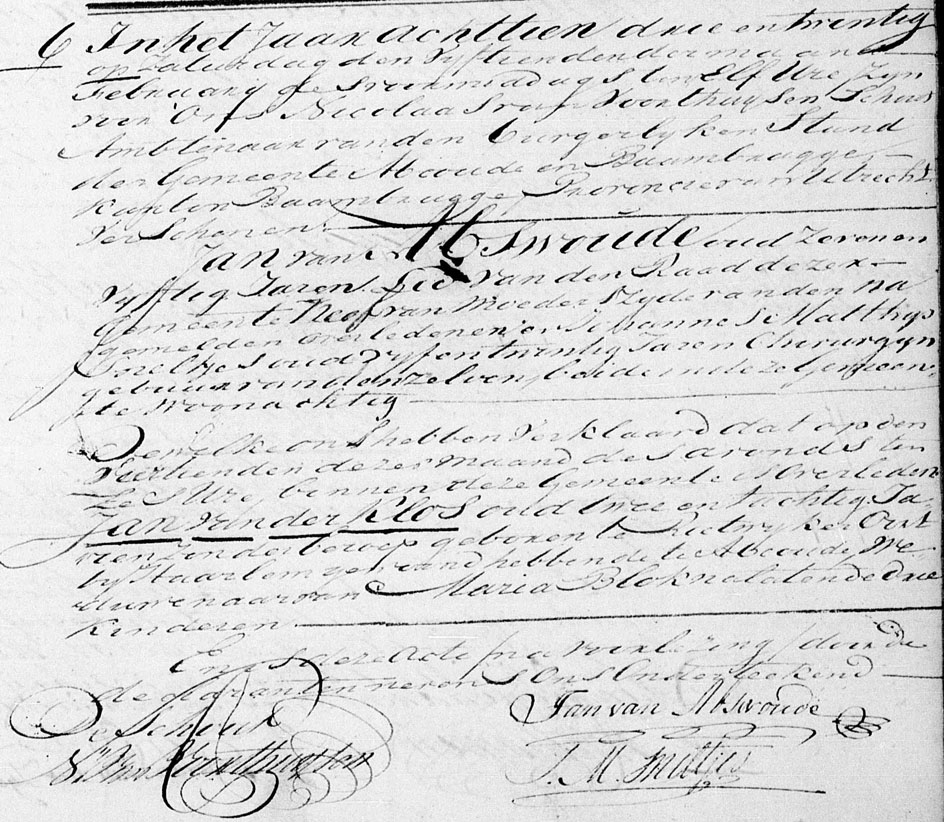 6 In het Jaar Achttien drie en twintig
op Zaturdag den Vyftienden der maan
Februarij des voormiddags ten Elf Ure, Zyn
voor Ons Nicolaas van Voorthuysen Schout
Ambtenaar van den burgerlyken Stand
der Gemeente Abcoude en Baambrugge
kanton Baambrugge Provincie van Utrecht
Verschenen
Jan van Abswoude oud Zeven en
Vyftig Jaren, Lid van den Raad dezer
gemeente Neef van Moeders Zyde van den na
gemelden overledenen en Johannes Matthijs
Sneltjes oud Vyf en twintig Jaren Chirurgyn
gebuur van denzelven, beide in deze Gemeen
te woonachtig
Dewelke ons hebben Verklaard dat op den
Veertienden dezer maand, des avonds ten
Zes Ure, binnen deze gemeente is Overleden
Jan van der Klos oud twee en tachtig Ja
ren zonder beroep geboren te Oost
by Haarlem gewoond hebbende te Abcoude, We
duwenaar van Maria Blok nalatende drie
Kinderen
En is deze Acte, na voorlezing, door de
de nevens Ons Onderteekend
De Schout
N. van Voorthuysen
Jan van Abswoude
J. M. Sneltjes